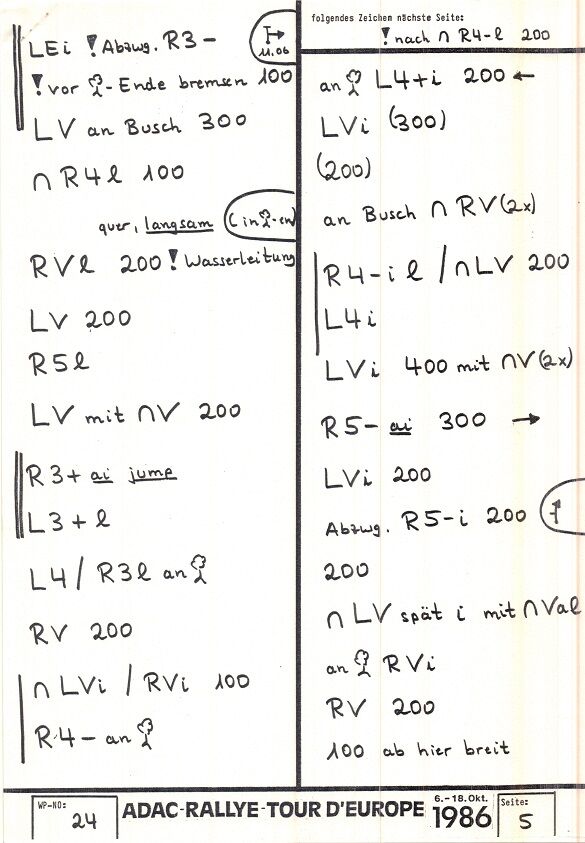 LEi ! Abzwg. R3-
11.06
! vor -Ende bremsen 100
LV an Busch 300
∩ R4l 100
quer, langsam (in -en)
RVl 200 ! Wasserleitung
LV 200
R5l
LV mit ∩V 200
R3+ ai jump
L3+l
L4 / R3l an
RV 200
∩ LVi / RVi 100
R4- an
folgendes Zeichen nächste Seite:
! nach ∩ R4-l 200
an L4+i 200 ←
LVi (300)
(200)
an Busch ∩ RV (2x)
R4-i l / ∩LV 200
L4i
LVi 400 mit ∩V (2x)
R5- ai 300 →
LVi 200
Abzwg. R5-i 200
200
∩ LV spät i mit ∩Val
an RVi
RV 200
100 ab hier breit
WP-NO: 24
ADAC-RALLYE-TOUR D'EUROPE 6.-18.Okt. 1986
Seite: 5